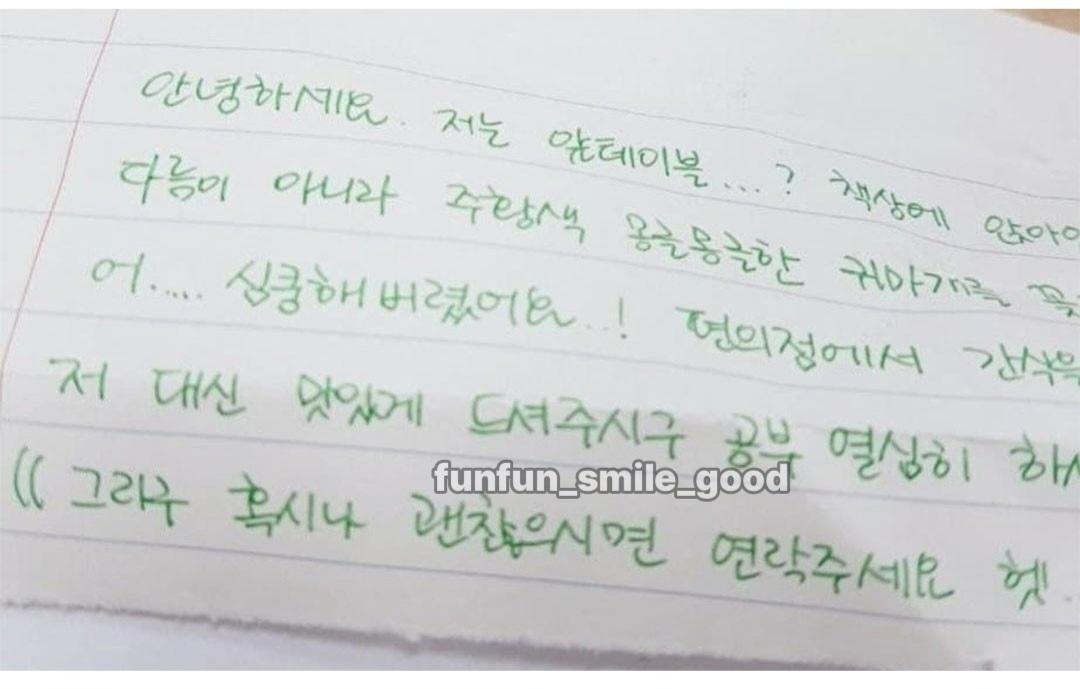 안녕하세요. 저는 앞테이블...? 책상에 앉아이
다름이 아니라 주황색 몽글몽글한 귀마개를 꽂
어..... 심쿵해버렸어요..! 편의점에서 간식을
저 대신 맛있게 드셔주시구 공부 열심히 하시
(( 그라구 혹시나 괜찮으시면 연락주세요 헷.
funfun_smile_good